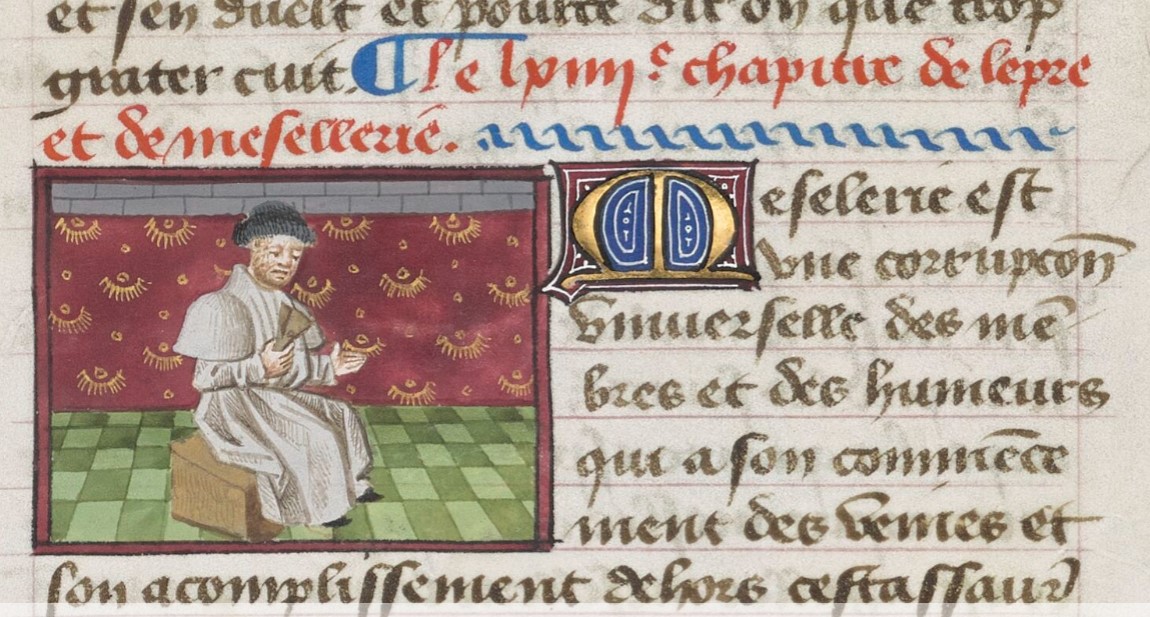 et sen duelt et pource dit on que trop
grater cuit. ¶ Le lxiiii.e chapitre de lepre
et de mesellerie.
Meselerie est
vne corrupcōn
vniuerselle des mē
bres et des humeurs
qui a son commēce
ment des veines et
son acomplissement dehors cestassauir